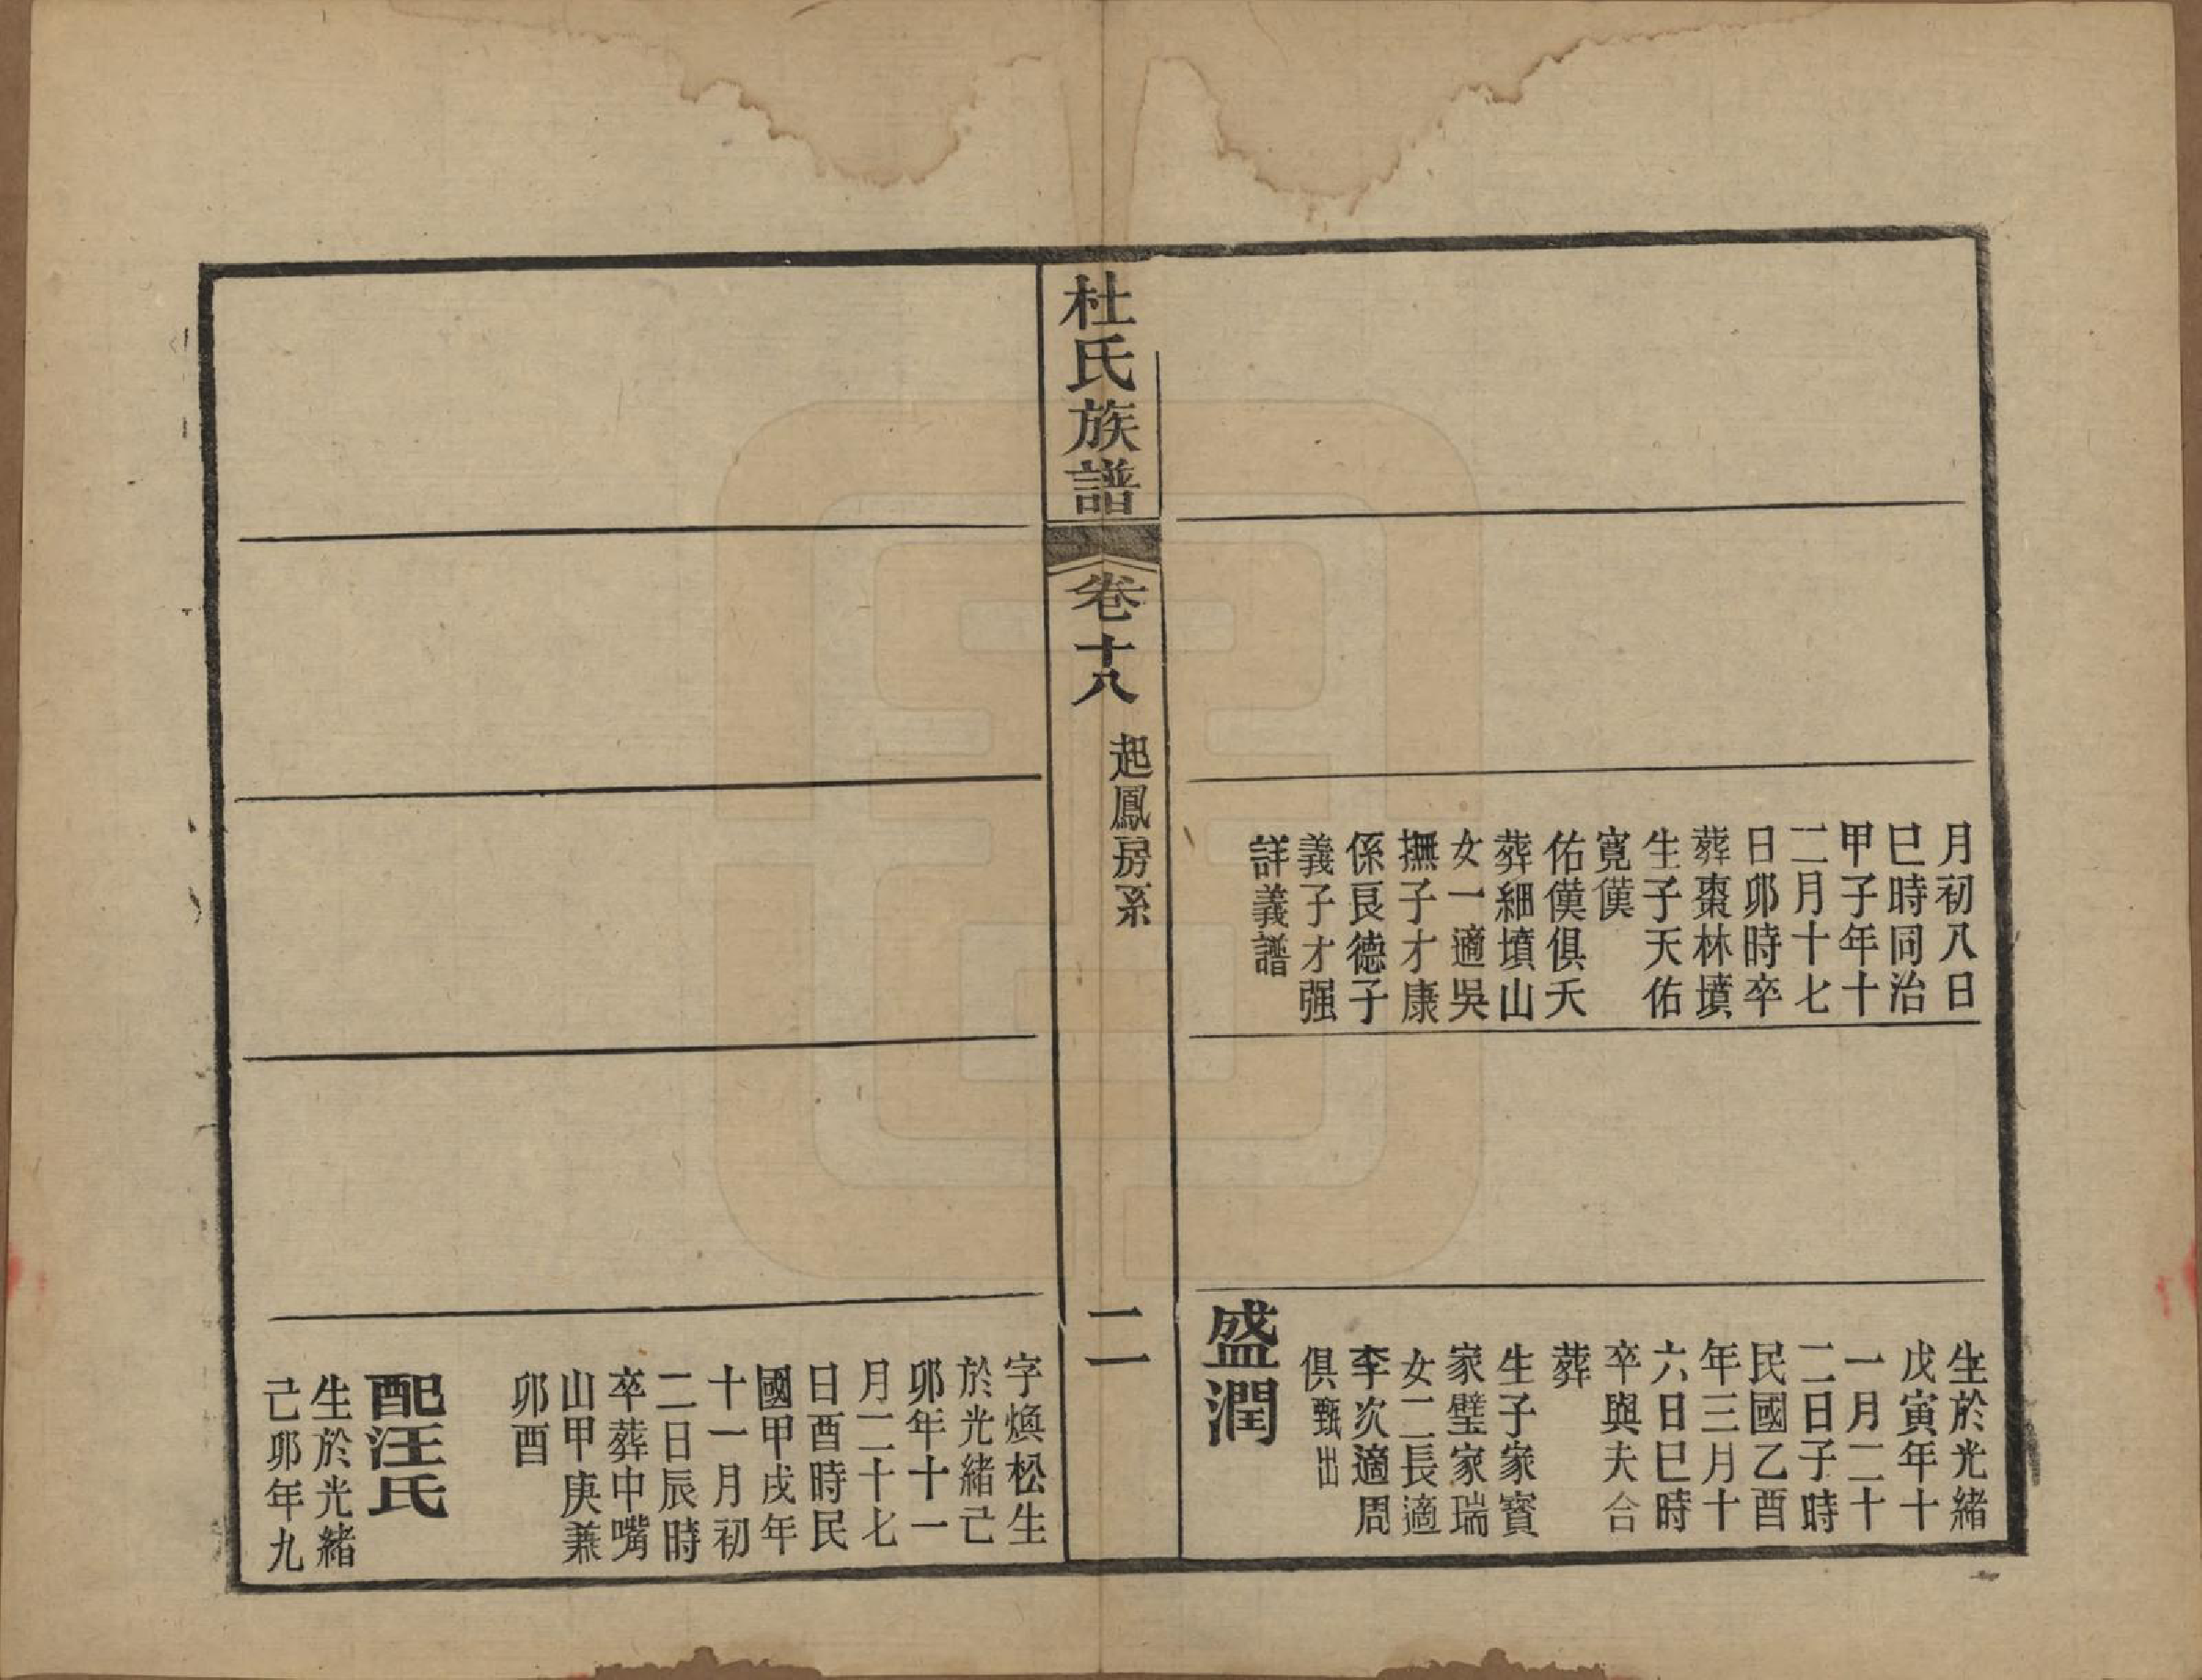 月初八日
巳時同治
甲子年十
二月十七
日卯時卒
葬棗林墳
生子天佑
寬僙
佑僙俱夭
葬細墳山
女一適吳
撫子才康
係良德子
義子才强
詳義譜
生於光緒
戊寅年十
一月二十
二日子時
民國乙酉
年三月十
六日巳時
卒與夫合
葬
生子家寳
家璧家瑞
女二長適
李次適周
俱甄出
盛潤
杜氏族譜
卷十八
起鳳房系
二
字煥松生
於光緒己
卯年十一
月二十七
日酉時民
國甲戌年
十一月初
二日辰時
卒葬中嘴
山甲庚兼
卯酉
配汪氏
生於光緒
己卯年九